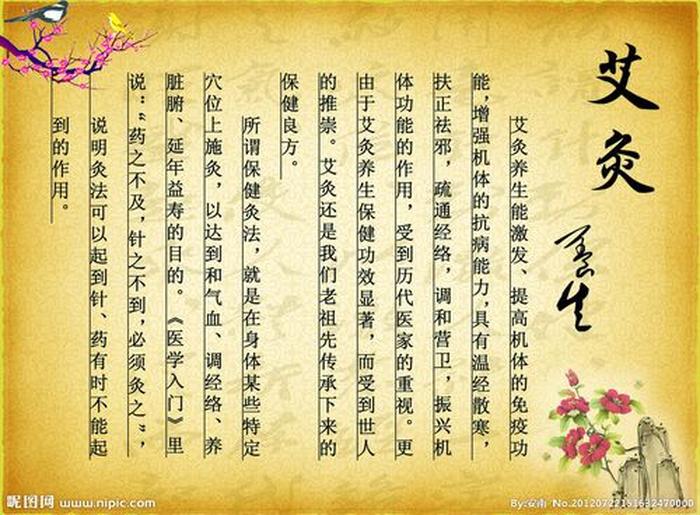 艾灸
养生
艾灸养生能激发、提高机体的免疫功
能,增强机体的抗病能力,具有温经散寒,
扶正祛邪,疏通经络,调和营卫,振兴机
体功能的作用,受到历代医家的重视。更
由于艾灸养生保健功效显著,而受到世人
的推崇。艾灸还是我们老祖先传承下来的
保健良方。
所谓保健灸法,就是在身体某些特定
穴位上施灸,以达到和气血、调经络、养
脏腑、延年益寿的目的。《医学入门》里
说:“药之不及,针之不到,必须灸之”,
说明灸法可以起到针、药有时不能起
到的作用。
昵图网 www.nipic.com
By:安南 No.20120722151632470000